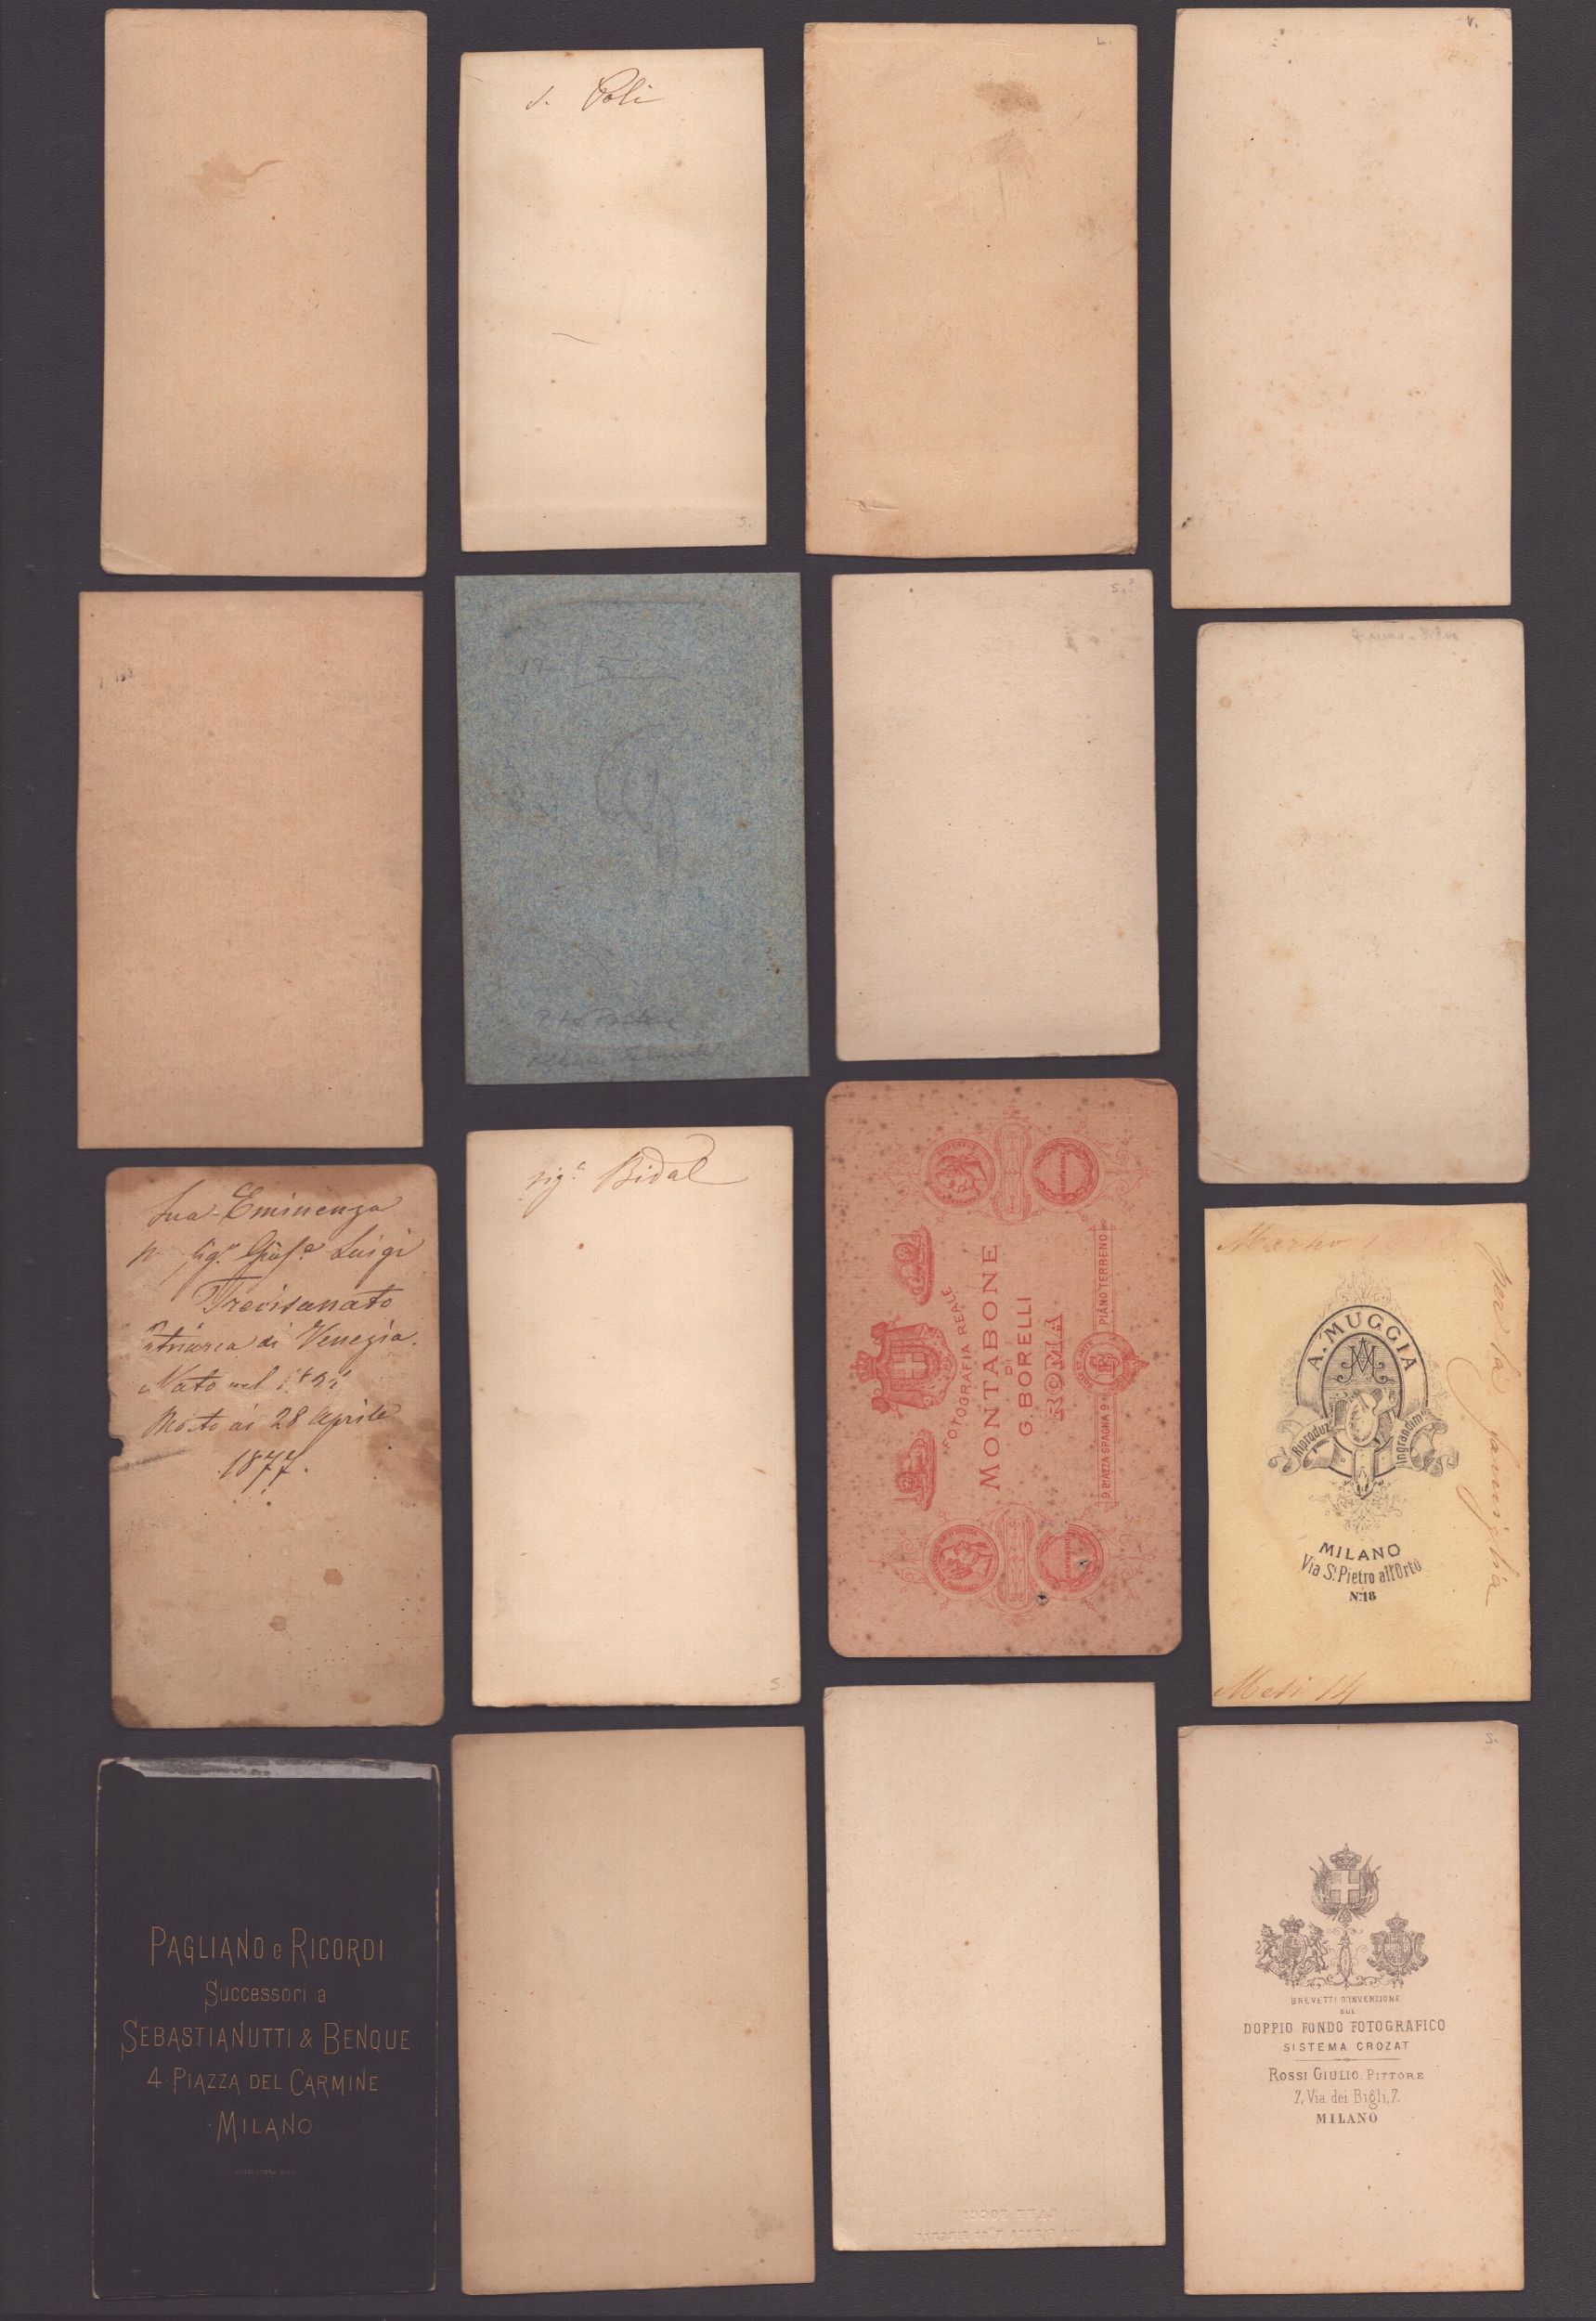 L.
V.
S. Poli
S.
S.
17 5
Sua Eminenza
Luigi
Trevisanato
Patriarca di Venezia.
Nato nel
Morto ai 28 Aprile
1877.
sig.ª Bidal
S.
FOTOGRAFIA REALE
MONTABONE
DI
G. BORELLI
ROMA
D. PIAZZA SPAGNA 9 PIANO TERRENO
A. MUGGIA
AM
Riproduz. Ingrandim.
MILANO
Via S. Pietro all'Orto
N. 18
per la famiglia
Mesi 14
PAGLIANO e RICORDI
Successori a
SEBASTIANUTTI & BENQUE
4 PIAZZA DEL CARMINE
·MILANO·
S.
BREVETTI D'INVENZIONE
SUL
DOPPIO FONDO FOTOGRAFICO
SISTEMA CROZAT
ROSSI GIULIO, PITTORE
7, Via dei Bigli, 7.
MILANO